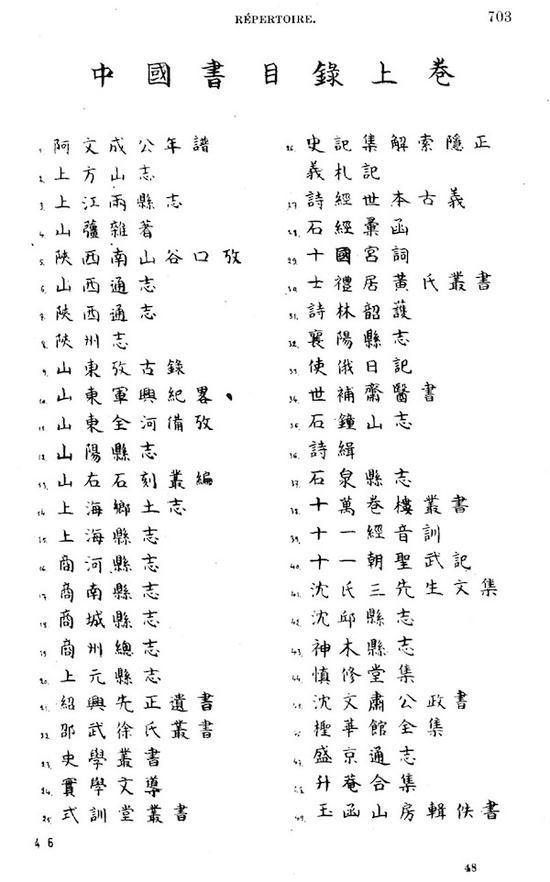 RÉPERTOIRE.
703
中國書目錄上卷
1. 阿文成公年譜
2. 上方山志
3. 上江兩縣志
4. 山薑雜著
5. 陝西南山谷口攷
6. 山西通志
7. 陝西通志
8. 陝州志
9. 山東攷古錄
10. 山東軍興紀畧
11. 山東全河備攷
12. 山陽縣志
13. 山右石刻叢編
14. 上海鄉土志
15. 上海縣志
16. 商河縣志
17. 商南縣志
18. 商城縣志
19. 商州總志
20. 上元縣志
21. 紹興先正遺書
22. 邵武徐氏叢書
23. 史學叢書
24. 實學文導
25. 式訓堂叢書
26. 史記集解索隱正
義札記
27. 詩經世本古義
28. 石經彙函
29. 十國宮詞
30. 士禮居黃氏叢書
31. 詩林韶護
32. 襄陽縣志
33. 使俄日記
34. 世補齋醫書
35. 石鐘山志
36. 詩緝
37. 石泉縣志
38. 十萬卷樓叢書
39. 十一經音訓
40. 十一朝聖武記
41. 沈氏三先生文集
42. 沈邱縣志
43. 神木縣志
44. 慎修堂集
45. 沈文肅公政書
46. 檉華館全集
47. 盛京通志
48. 升菴合集
49. 玉函山房輯佚書
4 6
48